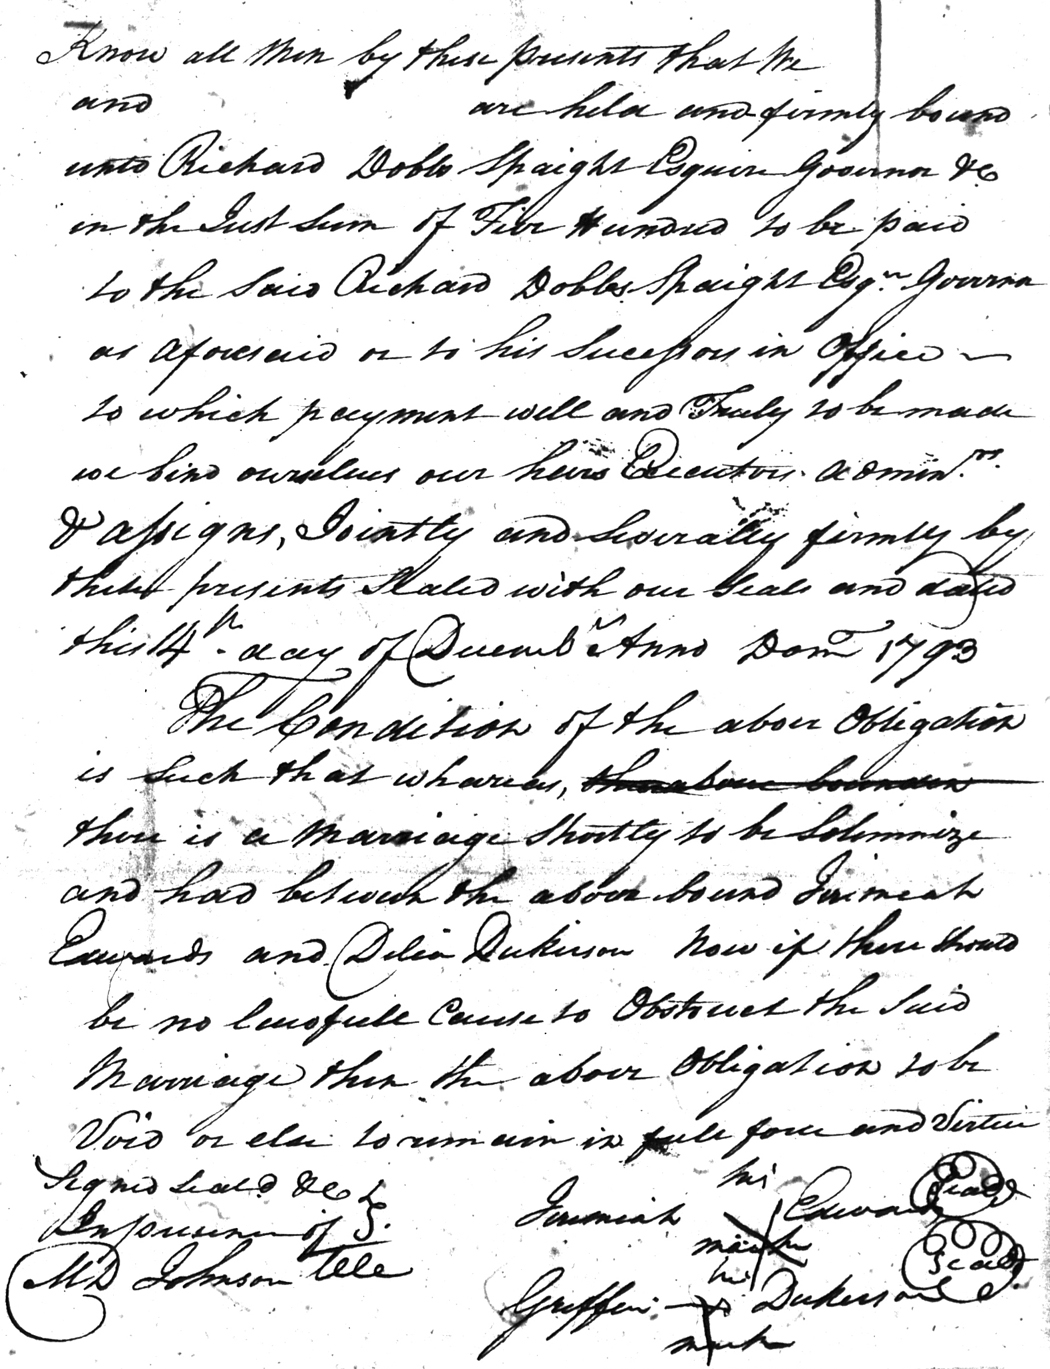 Know all Men by these presents that We
and are held and firmly bound
unto Richard Dobbs Spaight Esquire Governor &C
in the Just Sum of Five Hundred to be paid
to the Said Richard Dobbs Spaight Esqr. Governor
as aforesaid or to his Successors in Office
to which payment well and Truly to be made
we bind ourselves our heirs Executors adminrs.
& assigns, Jointly and Severally firmly by
these presents Sealed with our Seals and dated
this 14th day of Decembr Anno Dom 1793
The Condition of the above Obligation
is Such that whareas, the above bounden
there is a Marriage Shortly to be Solemnize
and had between the above bound Jerimeah
Edwards and Delia Dickerson Now if there Should
be no lawfull Cause to Obstruct the Said
Marriage then the above Obligation to be
Void or else to remain in full force and Virtue
Signed Seald &C
In presence of
MD Johnson
his
Jerimiah Edwards Seal
mark
his
Griffin Dickerson Seal
mark